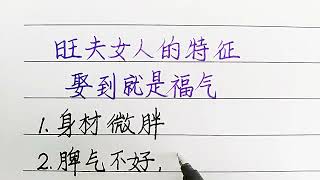 旺夫女人的特征
娶到就是福气
1.身材微胖
2.脾气不好,